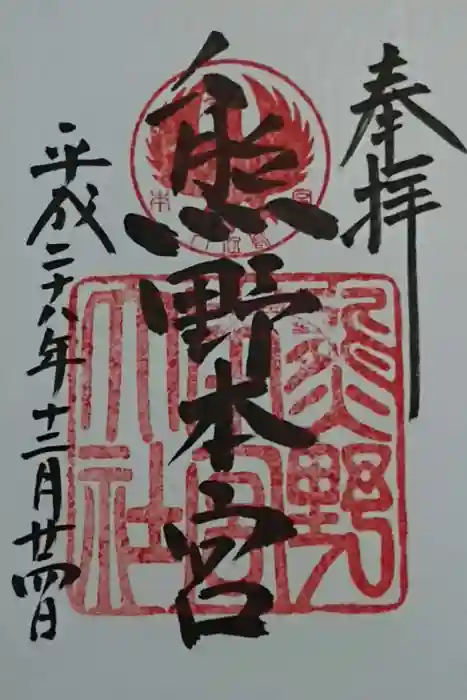 奉拝
熊野本宮
平成二十八年十二月廿四日
熊野
本宮
大社